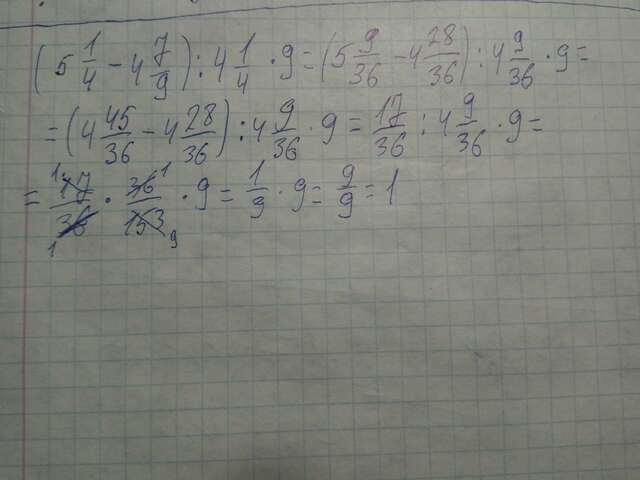 (5 1/4 - 4 7/9) : 4 1/4 · 9 = (5 9/36 - 4 28/36) : 4 9/36 · 9 =
= (4 45/36 - 4 28/36) : 4 9/36 · 9 = 17/36 : 4 9/36 · 9 =
= 17/36 · 36/153 · 9 = 1/9 · 9 = 9/9 = 1